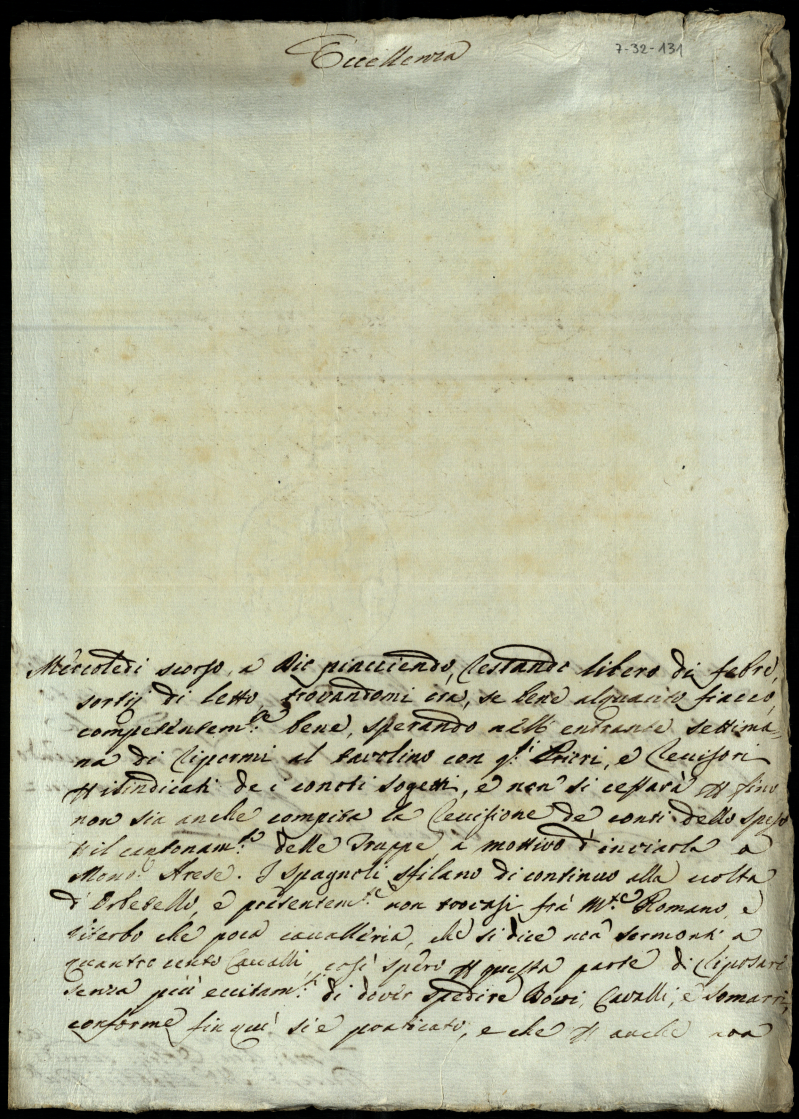 Eccellenza
7-32-131
Mercoledi scorso, a Dio piacciendo, restando libero di febre,
sortij di letto, trovandomi ora, se bene alquanto fiacco,
competentem.te bene, sperando nell' entrante settima-
na di ripormi al tavolino con q.sti Priori, e Revisori
de i conoti sogetti, e non si cessarà fino
non sia anche compita la Revisione de conti dello speso
il cantonam.to delle Truppe à mottivo d'inviarla a
Mons.r Arese. I Spagnoli sfilano di continuo alla volta
d'Orbetello, e presentem.te non trovasi frà M.te Romano, e
Viterbo che poca cavalleria, che si dice non sormonti a
quattro cento Cavalli, così spero questa parte di riposare
senza più eccitam.ti di dover spedire Bovi, Cavalli, e Somarri,
conforme fin quì si è pratticato, e che anche non